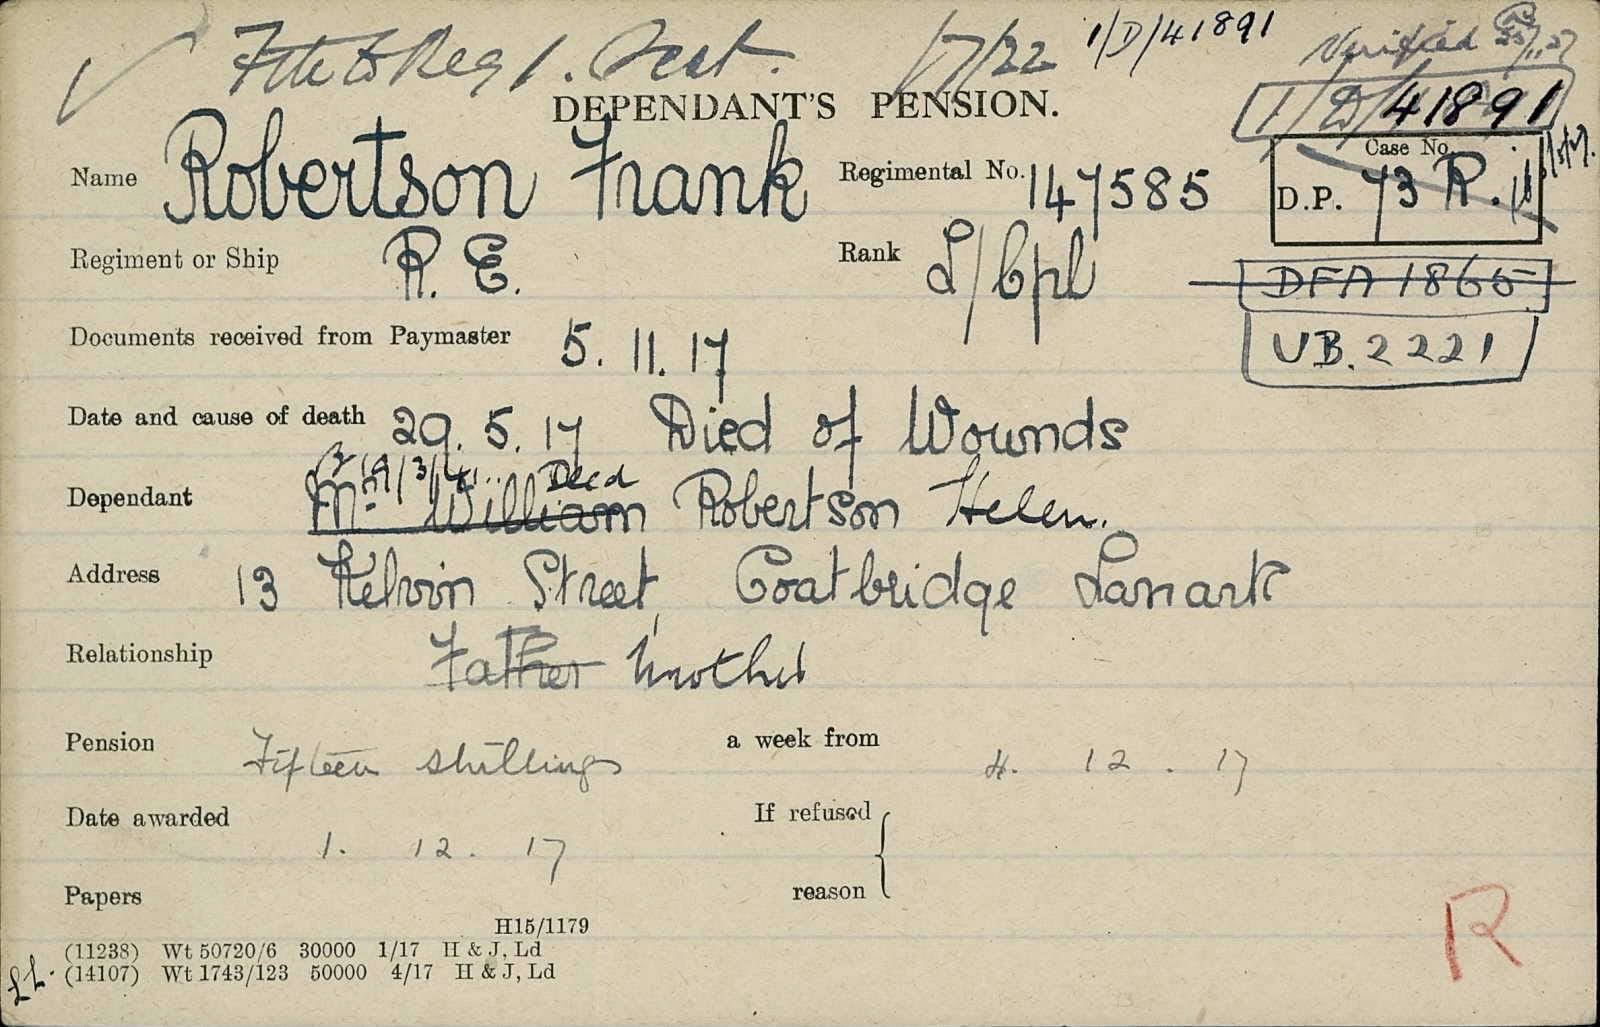 1/7/22 1/D/41891 Verified
DEPENDANT'S PENSION.
1/D/41891
Name Robertson Frank Regimental No. 147585
Case No.
D.P. 73 R.
Regiment or Ship R. E. Rank L/Cpl
DFA 1865
Documents received from Paymaster 5. 11. 17
UB. 2221
Date and cause of death 29. 5. 17 Died of Wounds
19/3/41 Decd
Dependant Mr. William Robertson Helen.
Address 13 Kelvin Street, Coatbridge Lanark
Relationship Father Mother
Pension Fifteen shillings a week from 4. 12. 17
Date awarded 1. 12. 17 If refused
Papers reason
H15/1179
(11238) Wt 50720/6 30000 1/17 H & J, Ld
(14107) Wt 1743/123 50000 4/17 H & J, Ld
R